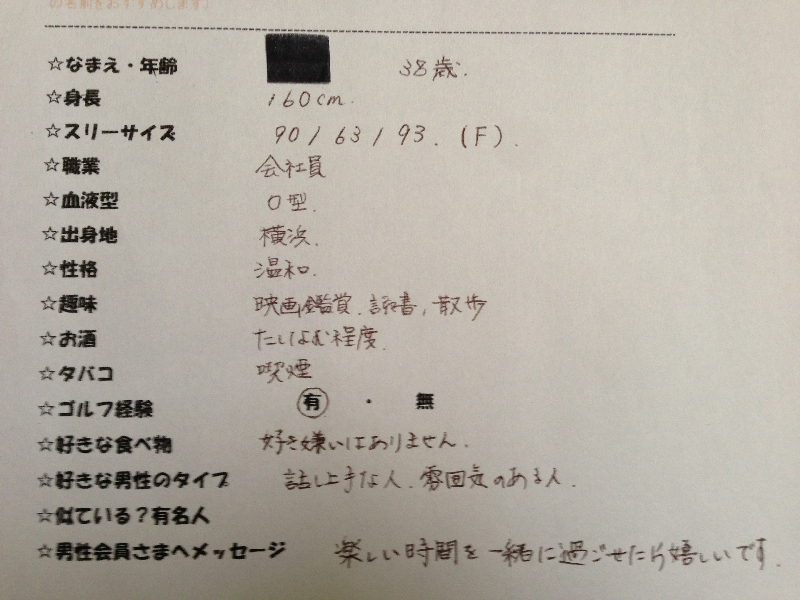 の名前をおすすめします)
☆なまえ・年齢 38歳.
☆身長 160cm.
☆スリーサイズ 90/63/93.(F).
☆職業 会社員
☆血液型 O型.
☆出身地 横浜.
☆性格 温和.
☆趣味 映画鑑賞.読書,散歩
☆お酒 たしなむ程度.
☆タバコ 喫煙
☆ゴルフ経験 有・無
☆好きな食べ物 好き嫌いはありません.
☆好きな男性のタイプ 話し上手な人.雰囲気のある人.
☆似ている?有名人
☆男性会員さまへメッセージ 楽しい時間を一緒に過ごせたら嬉しいです.